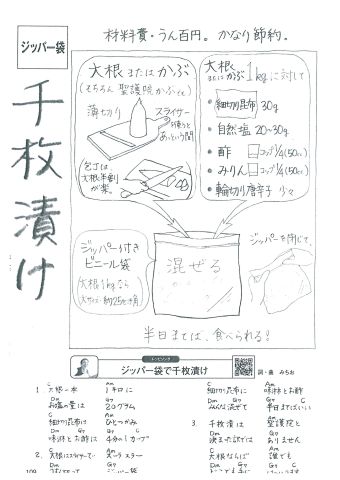 ジッパー袋
千枚漬け
材料費・うん百円。かなり節約。
大根またはかぶ
(もちろん聖護院かぶでも)
薄切り
スライサー
を使うと
あっという間
包丁は
大根半割り
が楽。
大根
またはかぶ1kgに対して
・細切り昆布 30g
・自然塩 20~30g
・酢 コップ1/4(50cc)
・みりん コップ1/4(50cc)
・輪切り唐辛子 少々
ジッパー付き
ビニール袋
大根1kgなら
大サイズ・約25cm角
混ぜる
ジッパーを閉じて、
半日までば、食べられる!
ジッパー袋で千枚漬け
詞・曲 みちお
C Am
1 大根一本 1キロに
Dm G7
お塩の量は 20グラム
C Am
細切り昆布は ひとつかみ
Dm G7 C
味淋とお酢は 4分の1カップ
C Am
2 大根はスライサーで スーラ スラー
Dm G7
C Am
細切り昆布に 味淋とお酢
Dm G7 C
みんな混ぜて 半日まてばいい
C Am
3 千枚漬は 聖護院と
Dm G7
決まった訳では ありません
C Am
大根ならば 誰でも
Dm G7 C